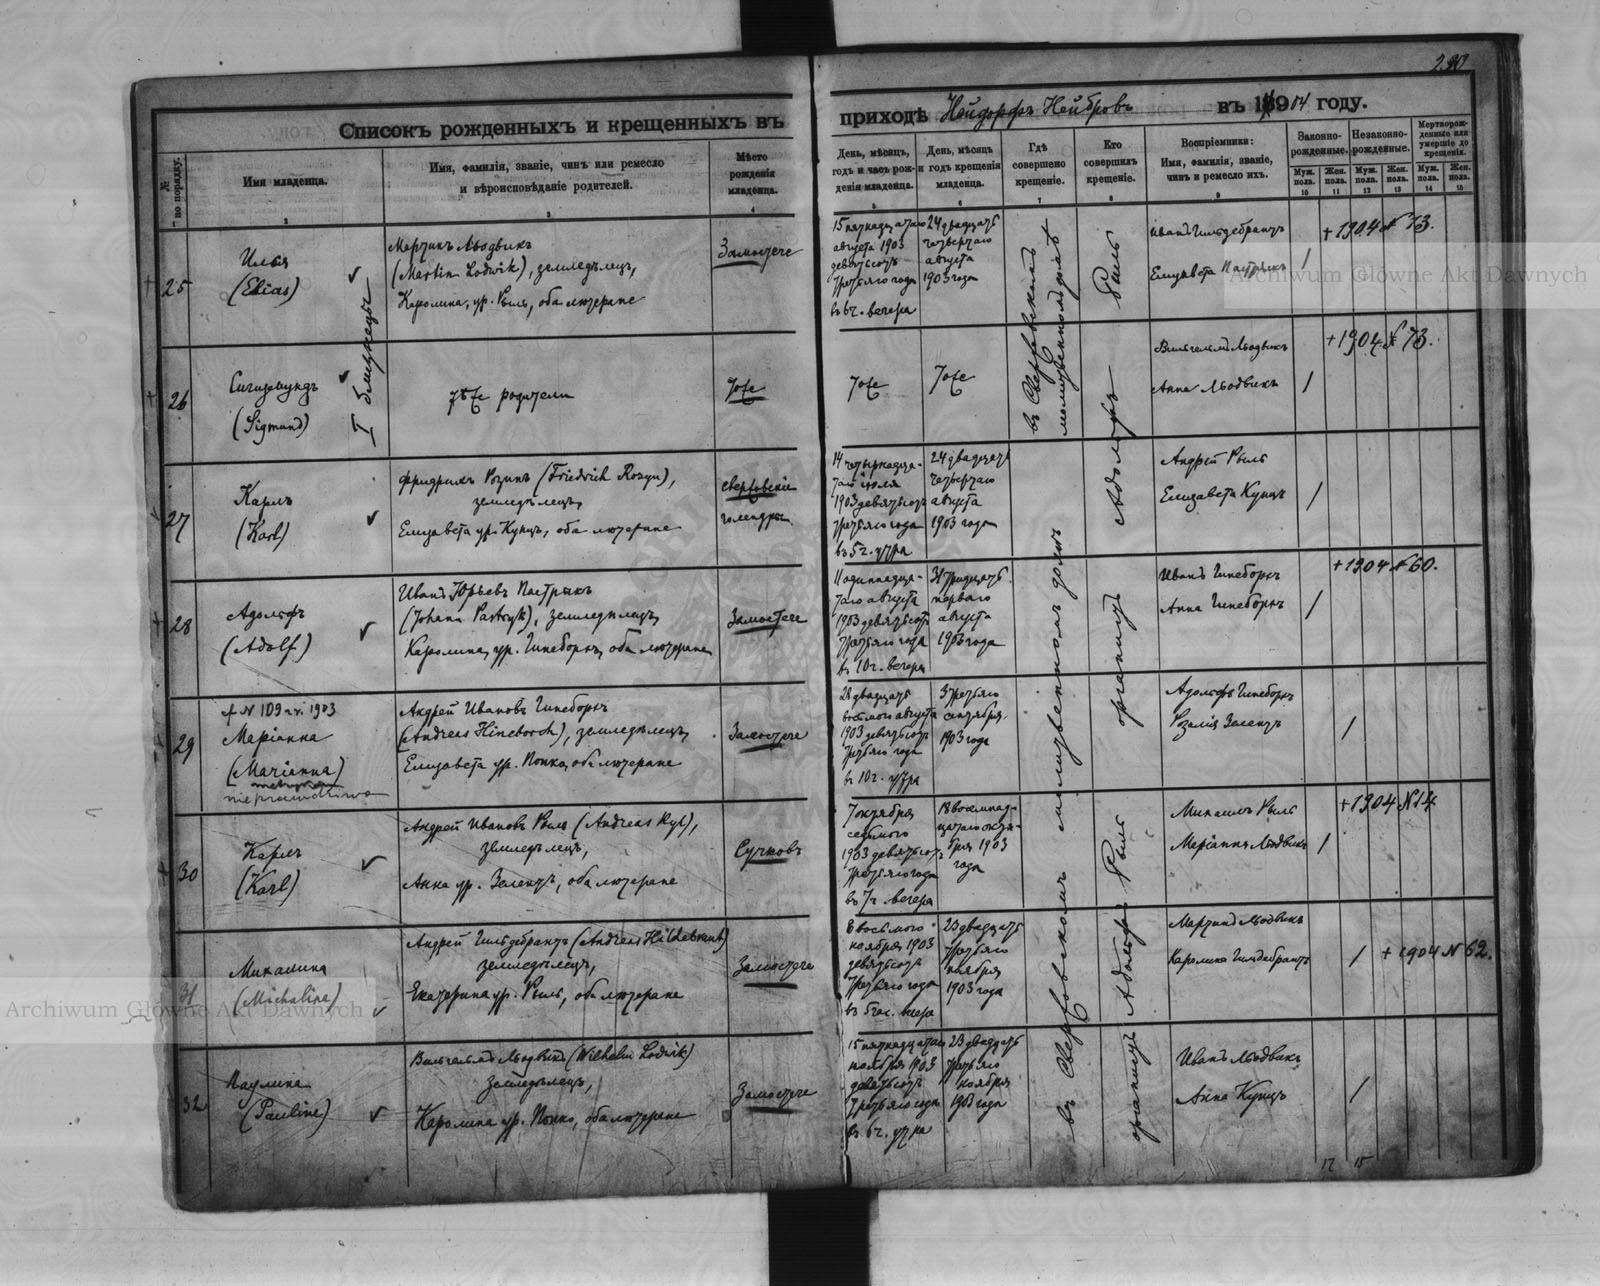 290
Списокъ рожденныхъ и крещенныхъ въ приходѣ Нейдорфъ Нейбровъ въ 1904 году.
№ по порядку.
Имя младенца.
Имя, фамилія, званіе, чинъ или ремесло
и вѣроисповѣданіе родителей.
Мѣсто
рожденія
младенца.
День, мѣсяцъ,
годъ и часъ рож-
денія младенца.
День, мѣсяцъ
и годъ крещенія
младенца.
Гдѣ
совершено
крещеніе.
Кто
совершилъ
крещеніе.
Воспріемники:
Имя, фамилія, званіе,
чинъ и ремесло ихъ.
Законно-
рожденные.
Незаконно-
рожденные.
Мертворож-
денные или
умершіе до
крещенія.
Муж. пола.
Жен. пола.
Муж. пола.
Жен. пола.
Муж. пола.
Жен. пола.
2
3
4
5
6
7
8
9
10
11
12
13
14
15
I близнецъ
въ Сверковскомъ
молитвенномъ домѣ
Рыль
25
Илья
(Elias)
Мартинъ Людвикъ
(Martin Lodwik), земледѣлецъ,
Каролина, ур. Рыль, оба лютеране
Замостече
15 пятнадцатаго
августа 1903
девятьсотъ
третьяго года
въ 6 ч. вечера
24 двадцать
четвертаго
августа
1903 года
Иванъ Гильдебрантъ
Елизавета Пастрыкъ
/
+1904 № 73.
26
Сигизмундъ
(Sigmund)
тѣже родители
тоже
тоже
тоже
Вильгельмъ Людвикъ
Анна Людвикъ
/
+1904 № 73.
27
Карлъ
(Karl)
Фридрихъ Розинъ (Friedrich Rozyn),
земледѣлецъ,
Елизавета ур. Кунцъ, оба лютеране
Сверковскіе
голендры
14 четырнадца-
таго іюля
1903 девятьсотъ
третьяго года
въ 5 ч. утра
24 двадцать
четвертаго
августа
1903 года
Андрей Рыль
Елизавета Кунцъ
/
28
Адольфъ
(Adolf)
Иванъ Юрьевъ Пастрыкъ
(Johann Pastryk), земледѣлецъ,
Каролина, ур. Гинеборхъ, оба лютеране
Замостече
11 одиннадца-
таго августа
1903 девятьсотъ
третьяго года
въ 10 ч. вечера
31 тридцать
перваго
августа
1903 года
Иванъ Гинеборхъ
Анна Гинеборхъ
/
+1904 № 60.
въ Сверковскомъ молитвенномъ домѣ
органистъ Адольфъ
29
+ N 109 1903
Маріанна
(Marianna)
nieprawdziwa
Андрей Ивановъ Гинеборхъ
(Andreas Hineborch), земледѣлецъ,
Елизавета ур. Попко, оба лютеране
Замостече
28 двадцать
восьмого августа
1903 девятьсотъ
третьяго года
въ 10 ч. утра
3 третьяго
сентября
1903 года
Адольфъ Гинеборхъ
Розалія Зелентъ
/
30
Карлъ
(Karl)
Андрей Ивановъ Рыль (Andreas Ryl),
земледѣлецъ,
Анна ур. Зелентъ, оба лютеране
Сучковъ
7 октября
седьмого
1903 девятьсотъ
третьяго года
въ 7 ч. вечера
18 восемнад-
цатаго октя-
бря 1903
года
Михаилъ Рыль
Маріанна Людвикъ
/
+1904 № 14
31
Михалина
(Michaline)
Андрей Гильдебрантъ (Andreas Hildebrant)
земледѣлецъ,
Екатерина ур. Рыль, оба лютеране
Замостече
8 восьмого
ноября 1903
девятьсотъ
третьяго года
въ 5 час. вечера
23 двадцать
третьяго
ноября
1903 года
Мартинъ Людвикъ
Каролина Гильдебрантъ
/
+ 1904 N 62.
32
Паулина
(Pauline)
Вильгельмъ Людвикъ (Wilhelm Lodwik)
земледѣлецъ,
Каролина ур. Попко, оба лютеране
Замостече
15 пятнадцатаго
ноября 1903
девятьсотъ
третьяго года
въ 6 ч. утра
23 двадцать
третьяго
ноября
1903 года
Иванъ Людвикъ
Анна Кунцъ
/
органистъ Адольфъ Рыль
17 15
Archiwum Główne Akt Dawnych
Archiwum Główne Akt Dawnych